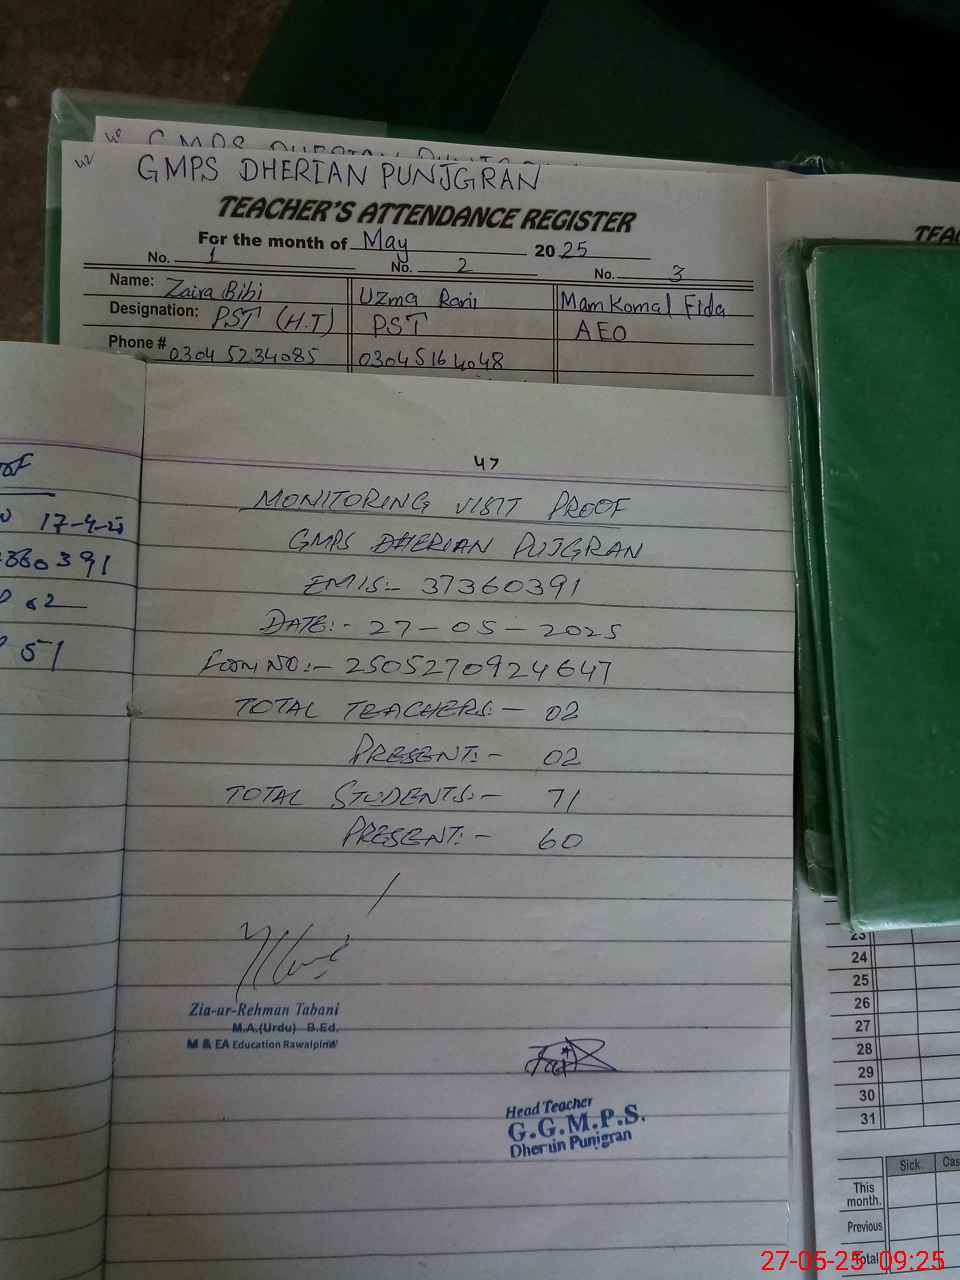 GMPS DHERIAN PUNJGRAN
TEACHER'S ATTENDANCE REGISTER
For the month of May 2025
No. 1 No. 2 No. 3
Name: Zaira Bibi Uzma Rani Mam Komal Fida
Designation: PST (H.T) PST AEO
Phone # 0304 5234085 03045164048
17-4-25
360391
62
51
47
MONITORING VISIT PROOF
GMPS DHERIAN PUJGRAN
EMIS:- 37360391
DATE:- 27-05-2025
Form NO:- 2505270924647
TOTAL TEACHERS:- 02
PRESENT:- 02
TOTAL STUDENTS:- 71
PRESENT:- 60
Zia-ur-Rehman Tabani
M.A.(Urdu) B.Ed.
M & EA Education Rawalpindi
Head Teacher
G.G.M.P.S.
Dherian Punjgran
23
24
25
26
27
28
29
30
31
Sick. Cas
This month.
Previous
Total
27-05-25 09:25